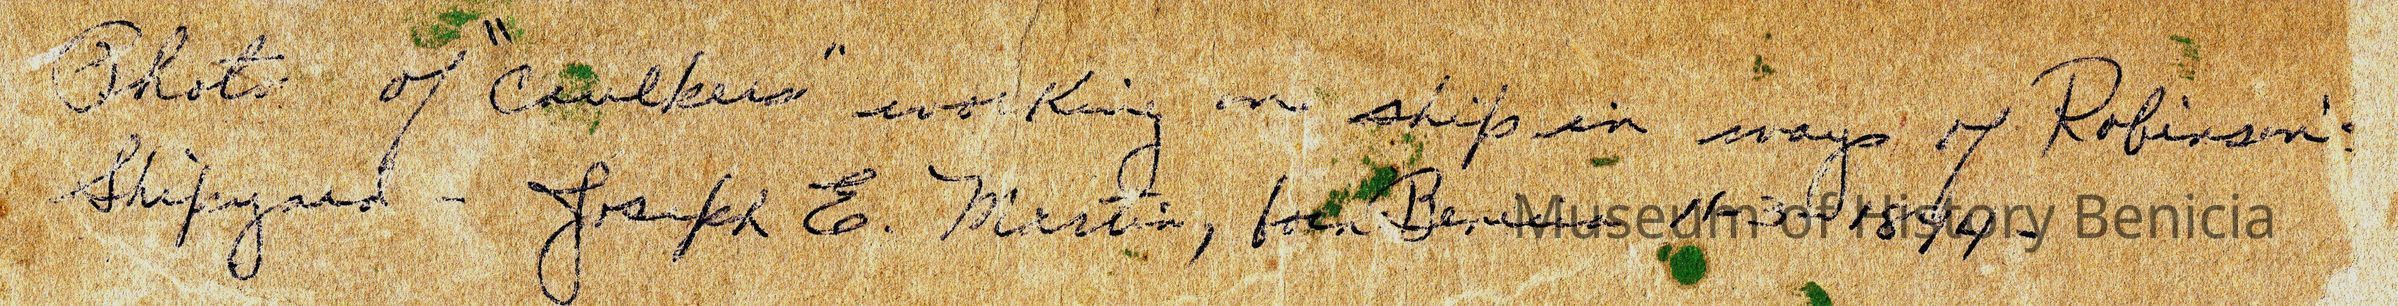 Photo of "Caulkers" working on ship in ways of Robinson's
Shipyard - Joseph E. Martin, born Benicia 11-3-1894-
Museum of History Benicia